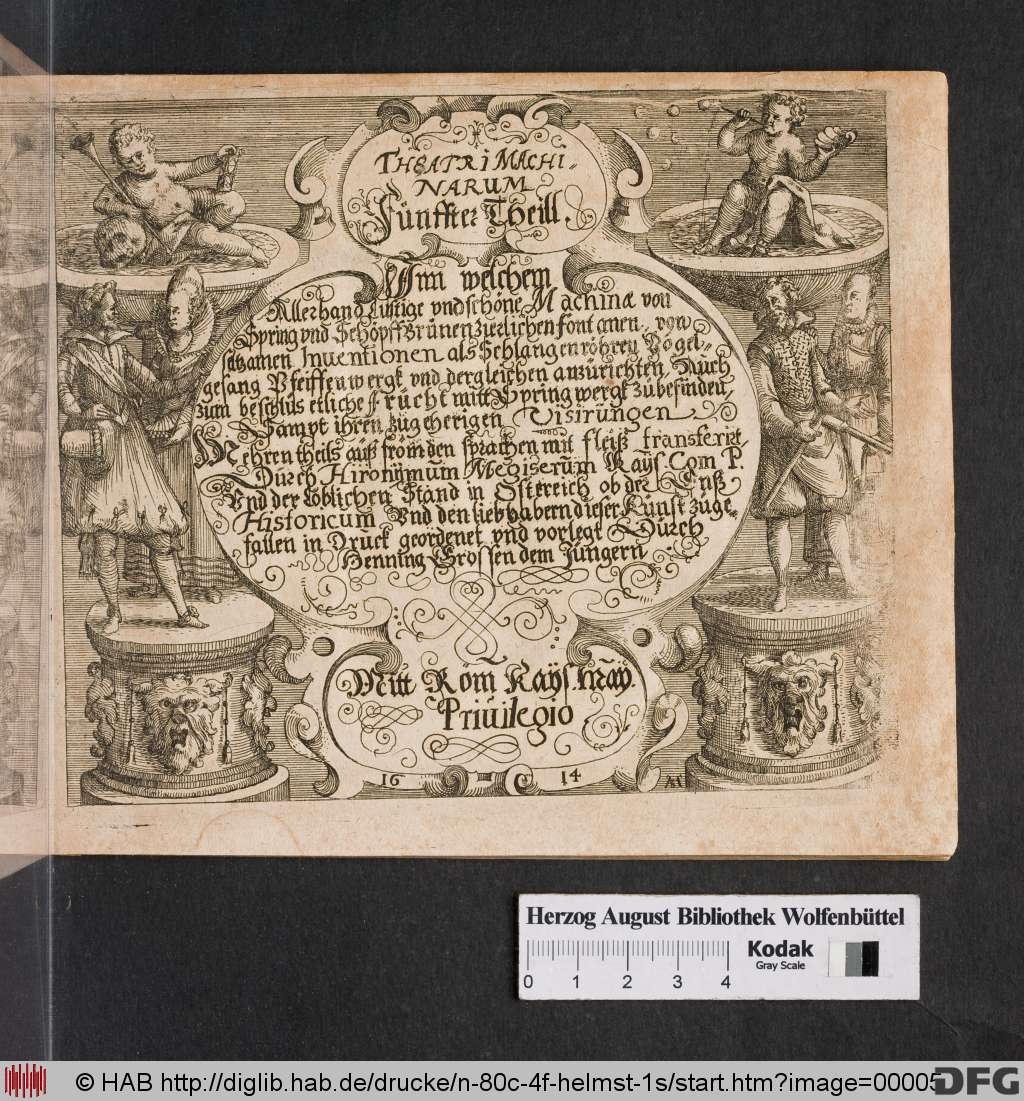 THEATRI MACHI-
NARUM
Fünffter Theill.
Inn welchem
Allerhand Lustige vnd schöne Machinæ von
Spring vnd Schöpff Brünen zierlichen fontanen. von
seltzamen Inventionen als Schlangenröhren Vögel-
gesang Pfeiffenwergk vnd dergleichen anzurichten, Auch
zum beschlus etliche frücht mitt Springwergk zubefinden
Sampt ihren zugehörigen Visirungen
Mehren theils auß frömden sprachen mit fleiß transferirt
Durch Hironymum Megiserum Kays. Com P.
Vnd der Löblichen Ständ in Östereich ob der Enß
Historicum Vnd den liebhabern dieser Kunst zuge-
fallen in Druck geordenet vnd vorlegt Durch
Henning Grossen dem Jüngern
Mitt Röm Kays. May.
Priuilegio
16 14
AM
Herzog August Bibliothek Wolfenbüttel
Kodak
Gray Scale
0 1 2 3 4
© HAB http://diglib.hab.de/drucke/n-80c-4f-helmst-1s/start.htm?image=00005
DFG